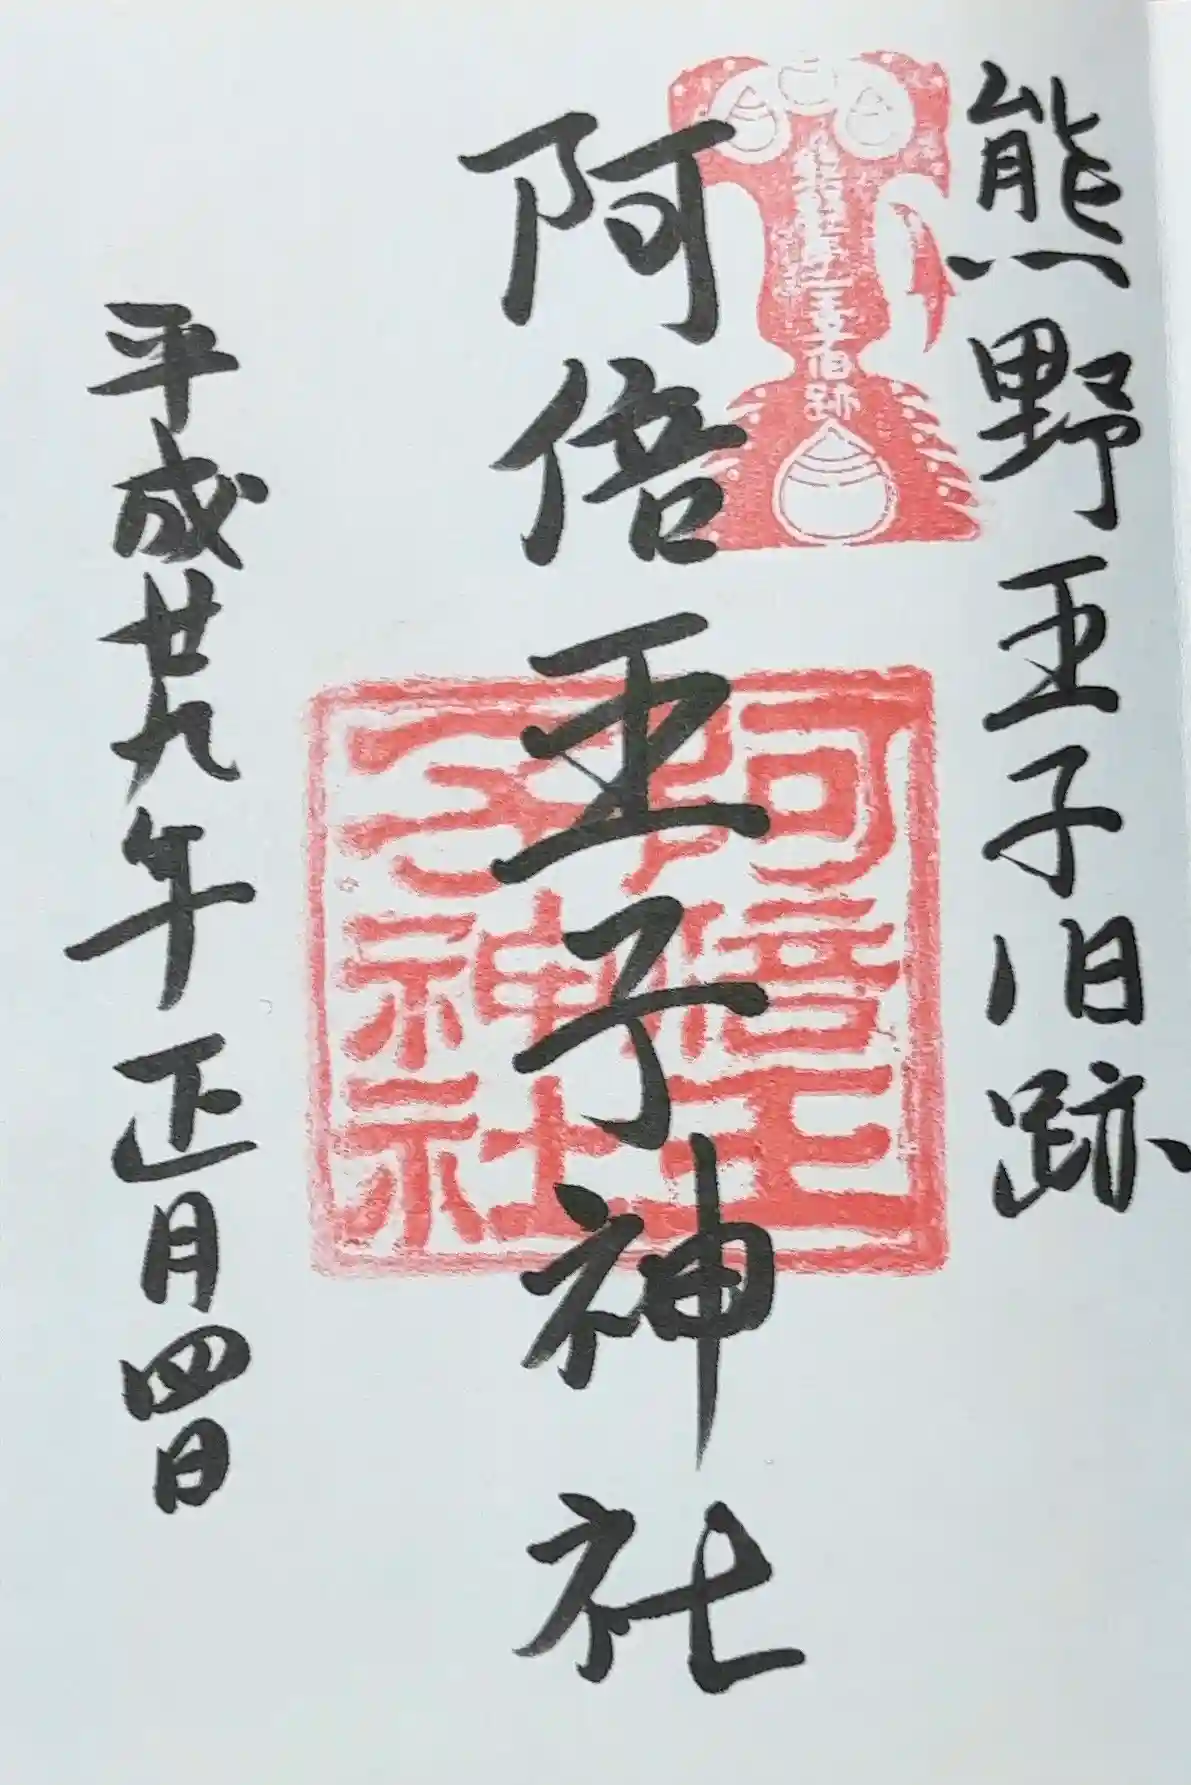 熊野王子旧跡
熊野王子旧跡
阿倍王子神社
阿倍王子神社
平成廿九年正月四日